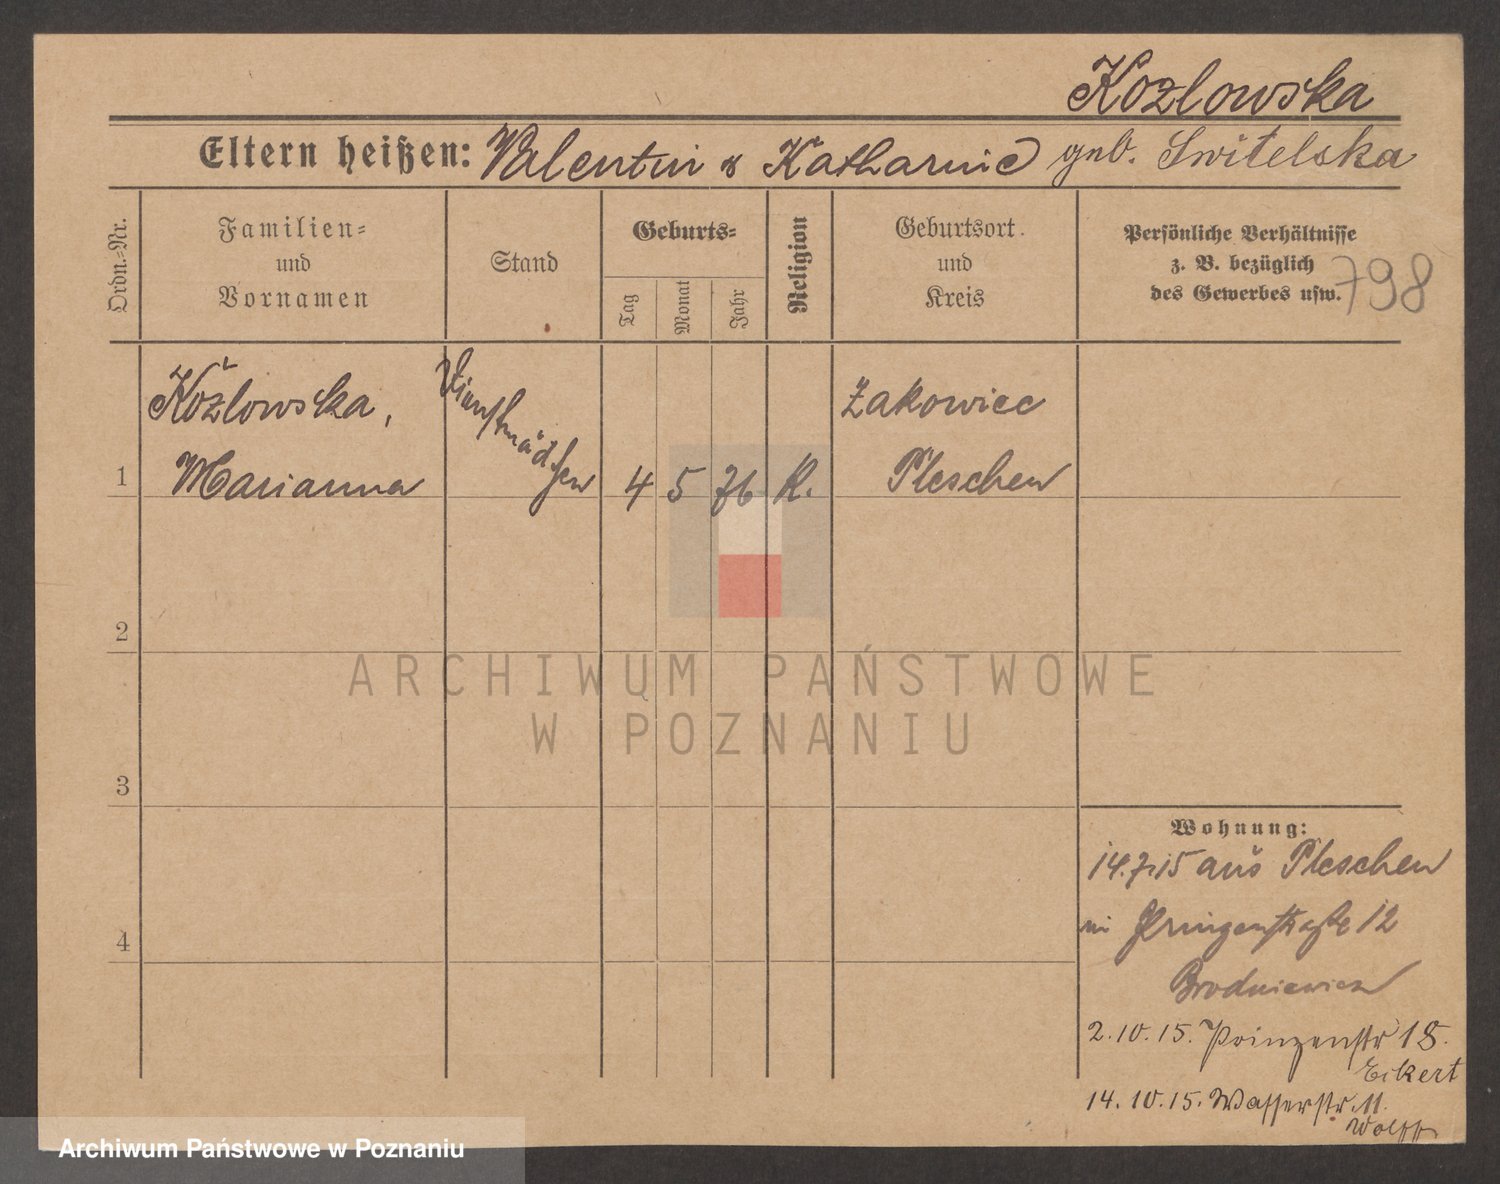 Kozlowska
Eltern heißen: Valentin & Katharine geb. Switelska
Ordn.-Nr.
Familien-
und
Vornamen
Stand
Geburts-
Tag
Monat
Jahr
Religion
Geburtsort
und
Kreis
Persönliche Verhältnisse
z. B. bezüglich
des Gewerbes usw.
798
1
Kozlowska,
Marianna
Dienstmädchen
4 5 76 K.
Zakowiec
Pleschen
2
3
4
ARCHIWUM PAŃSTWOWE
W POZNANIU
Wohnung:
14.7.15 aus Pleschen
12
Brodniewicz
2.10.15. Prinzenstr 18.
Eckert
14.10.15. Wasserstr. 11.
Wolff
Archiwum Państwowe w Poznaniu